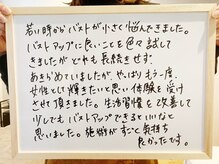 若い時からバストが小さく悩んできました。
バストアップに良いことを色々試して
きましたがどれも長続きせず
あきらめていましたが、やっぱりもう一度、
女性として輝きたいと思い体験を受け
させて頂きました。生活習慣を改善して
少しでもバストアップできるといいなと
思いました。施術がすごく気持ち
良かったです。